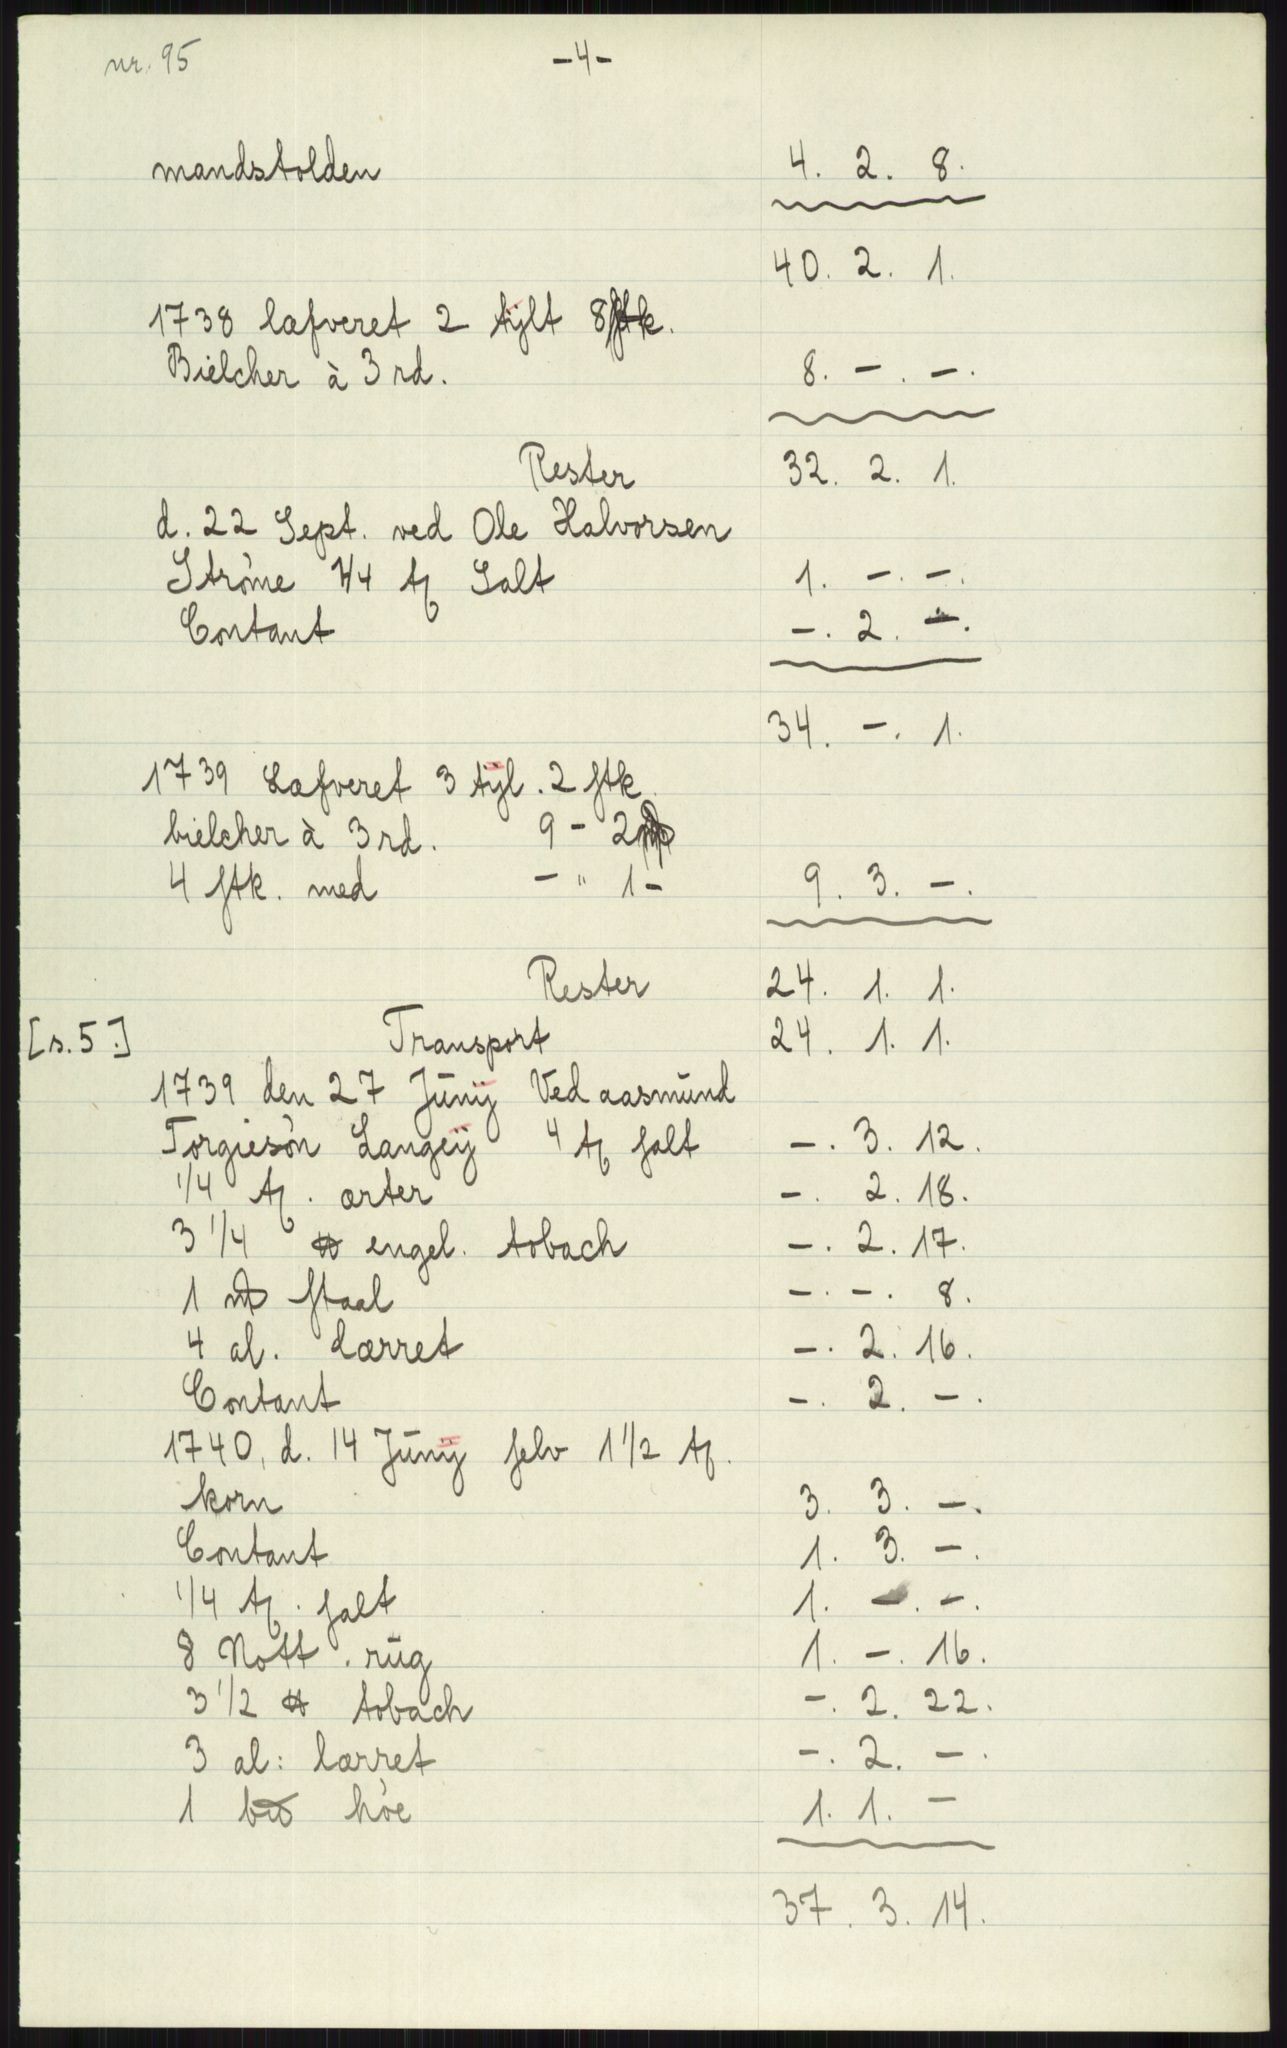 nr. 95 -4-
mandstolden 4. 2. 8.
40. 2. 1.
1738 læfveret 2 tÿlt 8 stk.
Bielcher à 3 rd. 8. -. -.
Rester 32. 2. 1.
d. 22 Sept. ved Ole Halvorsen
Stròme 1/4 tₔ Salt 1. -. -.
Contant -. 2. -.
34. -. 1.
1739 Læfveret 3 tÿl. 2 stk.
bielcher à 3 rd. 9 - 2
4 stk. med - " 1 - 9. 3. -.
Rester 24. 1. 1.
[s. 5.] Transport 24. 1. 1.
1739 den 27 Junÿ Ved aasmund
Torgiesòn Langeÿ 4 tₔ salt -. 3. 12.
1/4 tₔ. ærter -. 2. 18.
3 1/4 ℔ engel. tobach -. 2. 17.
1 staal -. -. 8.
4 al. lærret -. 2. 16.
Contant -. 2. -.
1740, d. 14 Junÿ selv 1 1/2 tₔ.
korn 3. 3. -.
Contant 1. 3. -.
1/4 tₔ. salt 1. -. -.
8 Nott. rug 1. -. 16.
3 1/2 ℔ tobach -. 2. 22.
3 al: lærret -. 2. -.
1 hòe 1. 1. -
37. 3. 14.